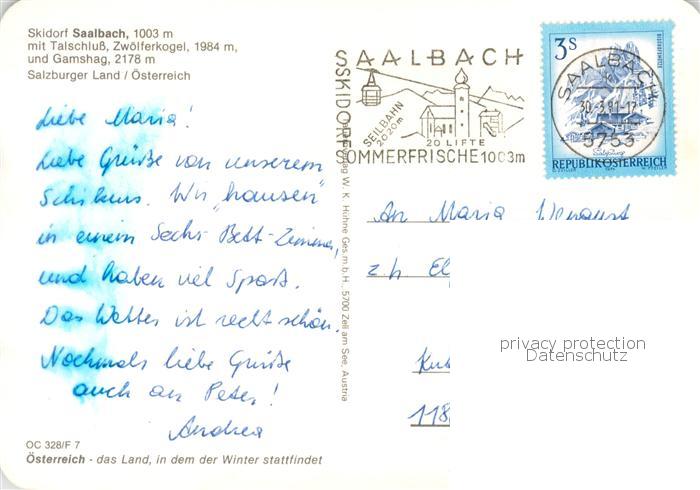 Skidorf Saalbach, 1003 m
mit Talschluß, Zwölferkogel, 1984 m,
und Gamshag, 2178 m
Salzburger Land / Österreich
Liebe Maria!
Liebe Grüße von unserem
Schikurs. Wir "hausen"
in einem Sechs-Bett-Zimmer,
und haben viel Spaß.
Das Wetter ist recht schön.
Nochmals liebe Grüße
auch an Peter!
Andrea
OC 328/F 7
Österreich - das Land, in dem der Winter stattfindet
Verlag W. K. Hühne Ges.m.b.H., 5700 Zell am See, Austria
SAALBACH
SKIDORF
SEILBAHN
2020m
20 LIFTE
SOMMERFRISCHE 1003m
3S
SAALBACH
5753
REPUBLIK ÖSTERREICH
An Maria
z.H.
118
privacy protection
Datenschutz